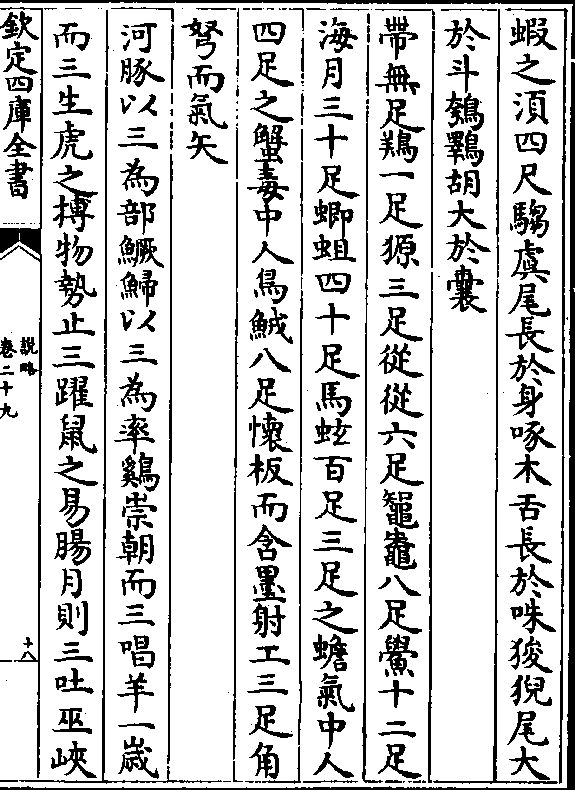 蝦之湏四尺騶虞尾長於身啄木舌長於咮狻猊尾大
於斗鵚鶖胡大於囊
帶無足鷄一足獂三足從從六足鼅鼄八足鱟十二足
海月三十足蝍蛆四十足馬蚿百足三足之蟾氣中人
四足之蟹毒中人烏鰂八足懷板而含墨射工三足角
弩而氣矢
河豚以三為部鱖鯞以三為率鷄崇朝而三唱羊一歳
而三生虎之搏物勢止三躍鼠之易腸月則三吐巫峽
欽定四庫全書
説略
卷二十九
十八